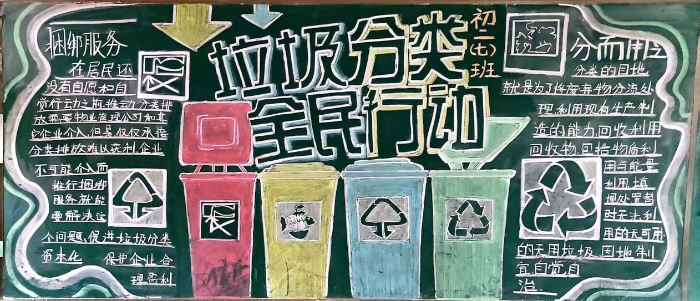 垃圾分类
全民行动
初二(七)班
捆绑服务
在居民还
没有自愿和自
觉行动之前推动分类排
放需要物业管理公司和其
它企业介入但是仅仅承接
分类排放难以获利企业
不可能介入而
推行捆绑
服务就能
够解决这
个问题,促进垃圾分类
资本化 保护企业合
理盈利
分而用之
分类的目地
就是为了将废弃物分流处
理,利用现有生产制
造的能力,回收利用
回收物,包括物质利
用与能量
利用,填
埋处置暂
时无法利
用的无可用
的无用垃圾,因地制
宜自觉自
治.